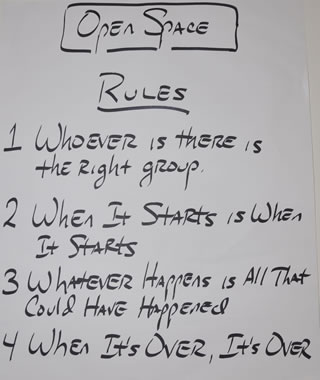 Open Space
Rules
1 Whoever is there is
the right group.
2 When It Starts is When
It Starts
3 Whatever Happens is All That
Could Have Happened
4 When It's Over, It's Over